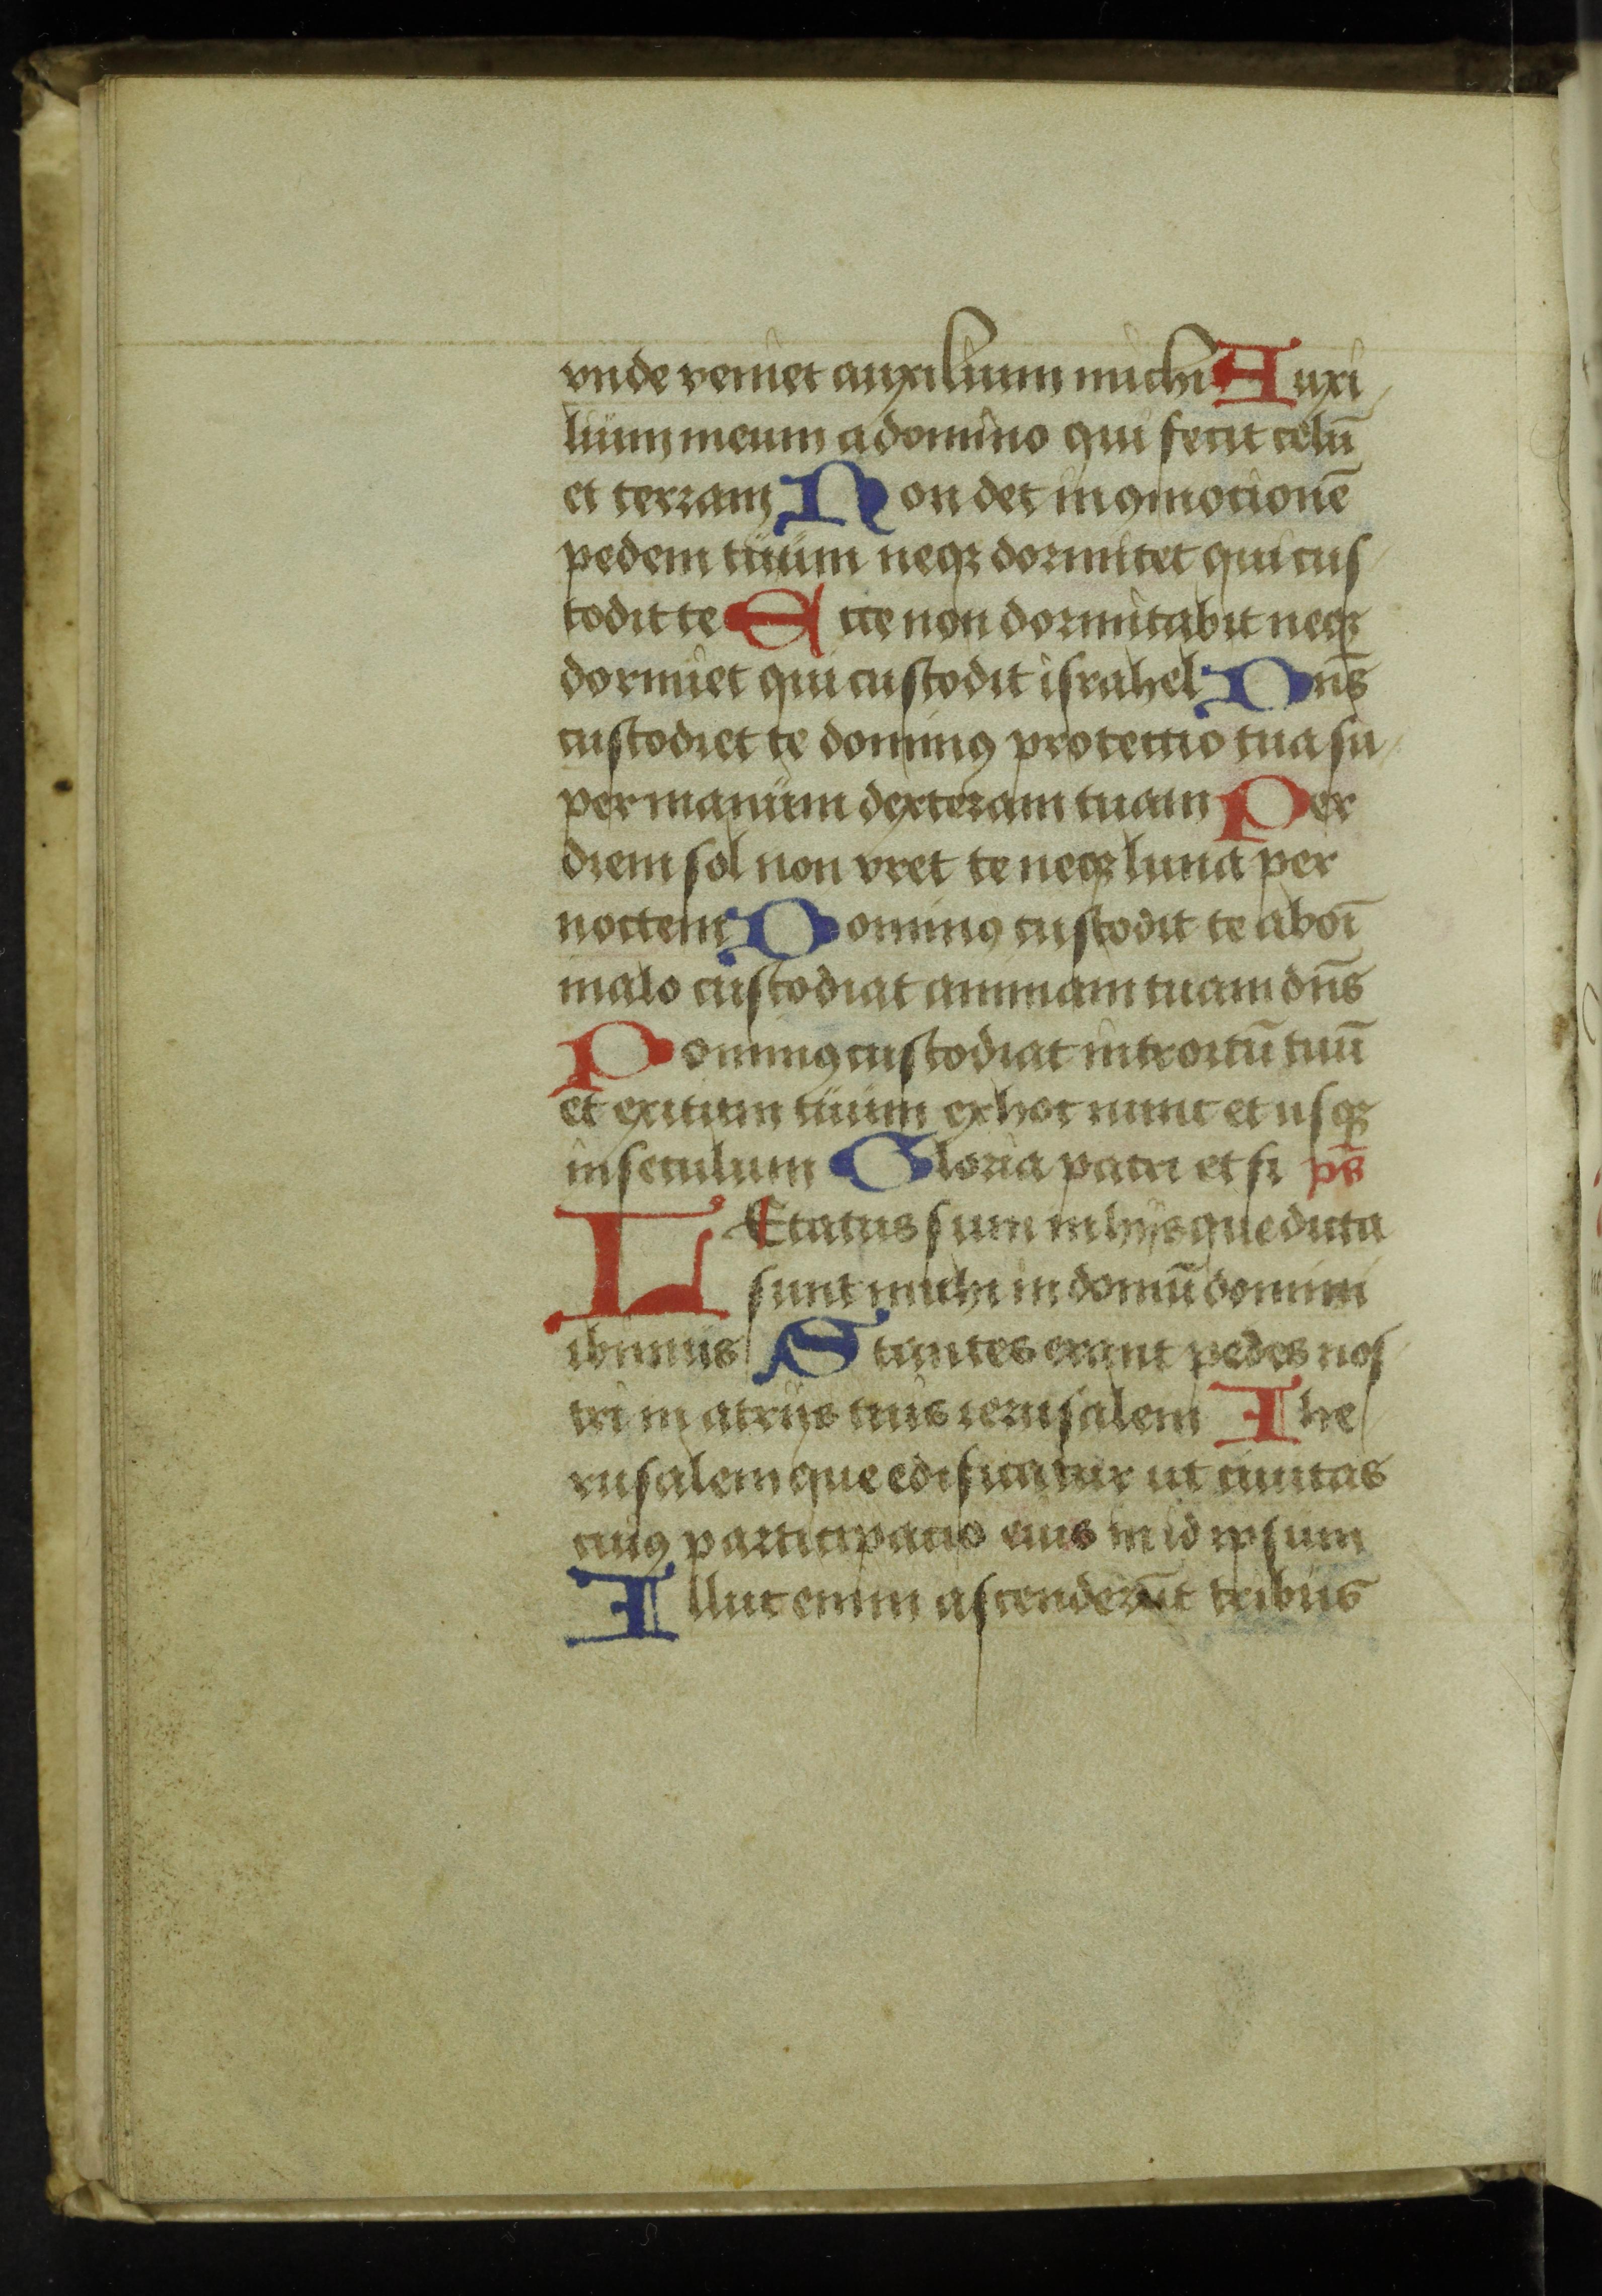 vnde veniet auxilium michi Auxi
lium meum a domino qui fecit celū
et terram Non det in ꝯmotionē
pedem tuum neqꝫ dormitet qui cus
todit te Ecce non dormitabit neqꝫ
dormiet qui custodit israhel Dn̄s
custodiet te dominꝯ protectio tua su
per manum dexteram tuam Per
diem sol non vret te neqꝫ luna per
noctem Dominꝯ custodit te ab oī
malo custodiat animam tuam dn̄s
Dominꝯ custodiat introitū tuū
et exitum tuum ex hoc nunc et usqꝫ
in seculum Gloria patri et fi ps̄
LEtatus sum in hijs que dicta
sunt michi in domū domini
ibimus Stantes erant pedes nos
tri in atrijs tuis ierusalem Ihe
rusalem que edificatur ut ciuitas
cuiꝯ participatio eius in id ipsum
Illuc enim ascenderūt tribus